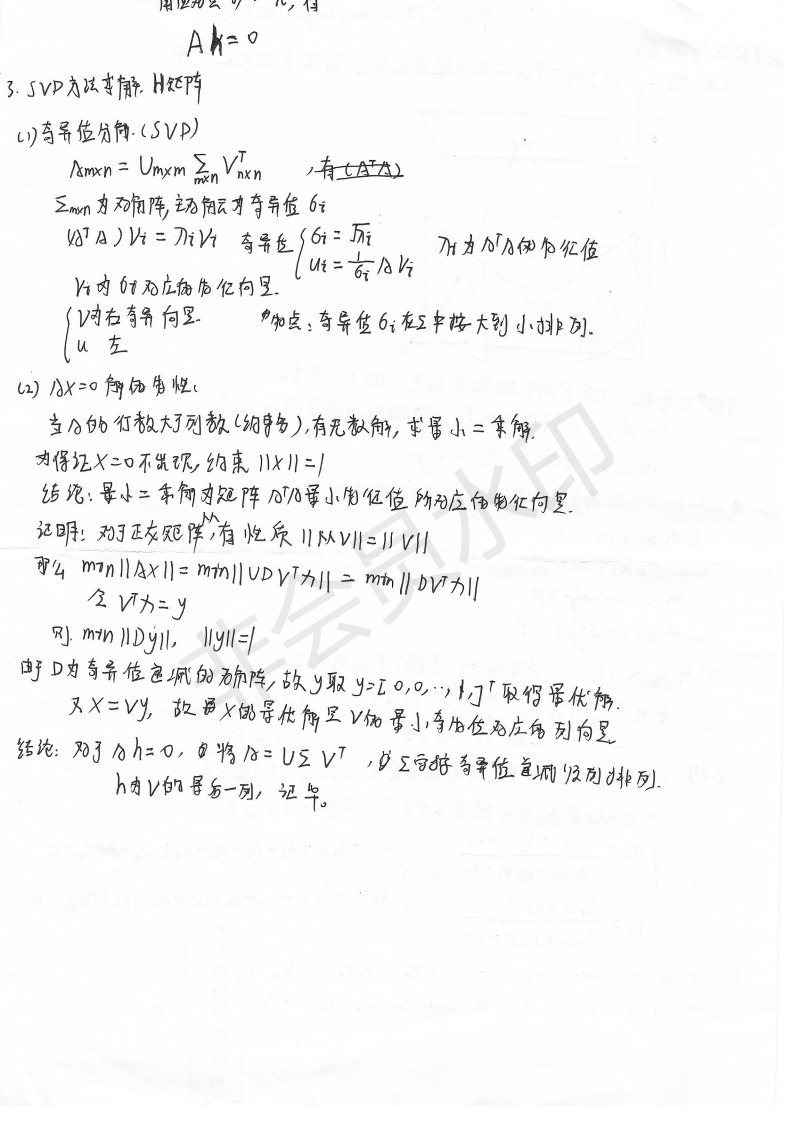 Ah=0
3. SVD方法求解.H矩阵
(1)奇异值分解.(SVD)
Am×n = Um×m Σm×n V^T n×n ,有(A^TA)
Σm×n为对角阵,主对角元为奇异值 σi
(A^T A)Vi = λiVi 奇异值 { σi = √λi λi为A^TA的特征值
ui = 1/σi A Vi
Vi为σi对应的特征向量.
{ V为右奇异向量. 特点:奇异值σi在Σ中按大到小排列.
u 左
(2) AX=0解的特性:
当A的行数大于列数(约束多),有无数解,求最小二乘解.
为保证X=0不出现,约束||X||=1
结论:最小二乘解为矩阵A^TA最小特征值所对应的特征向量.
证明:对于正交矩阵M,有性质||MV||=||V||
那么 min||AX|| = min||UDV^Tx|| = min||DV^Tx||
令 V^Tx = y
则. min||Dy||, ||y||=1
由于D为奇异值递减的对角阵,故y取y=[0,0,..,1,]^T取得最优解.
又X=Vy,故X的最优解是V的最小奇异值对应的列向量
结论:对于Ah=0,将A=UΣV^T,Σ包括奇异值递减次列为排列.
h为V的最后一列,证毕。
非会员水印